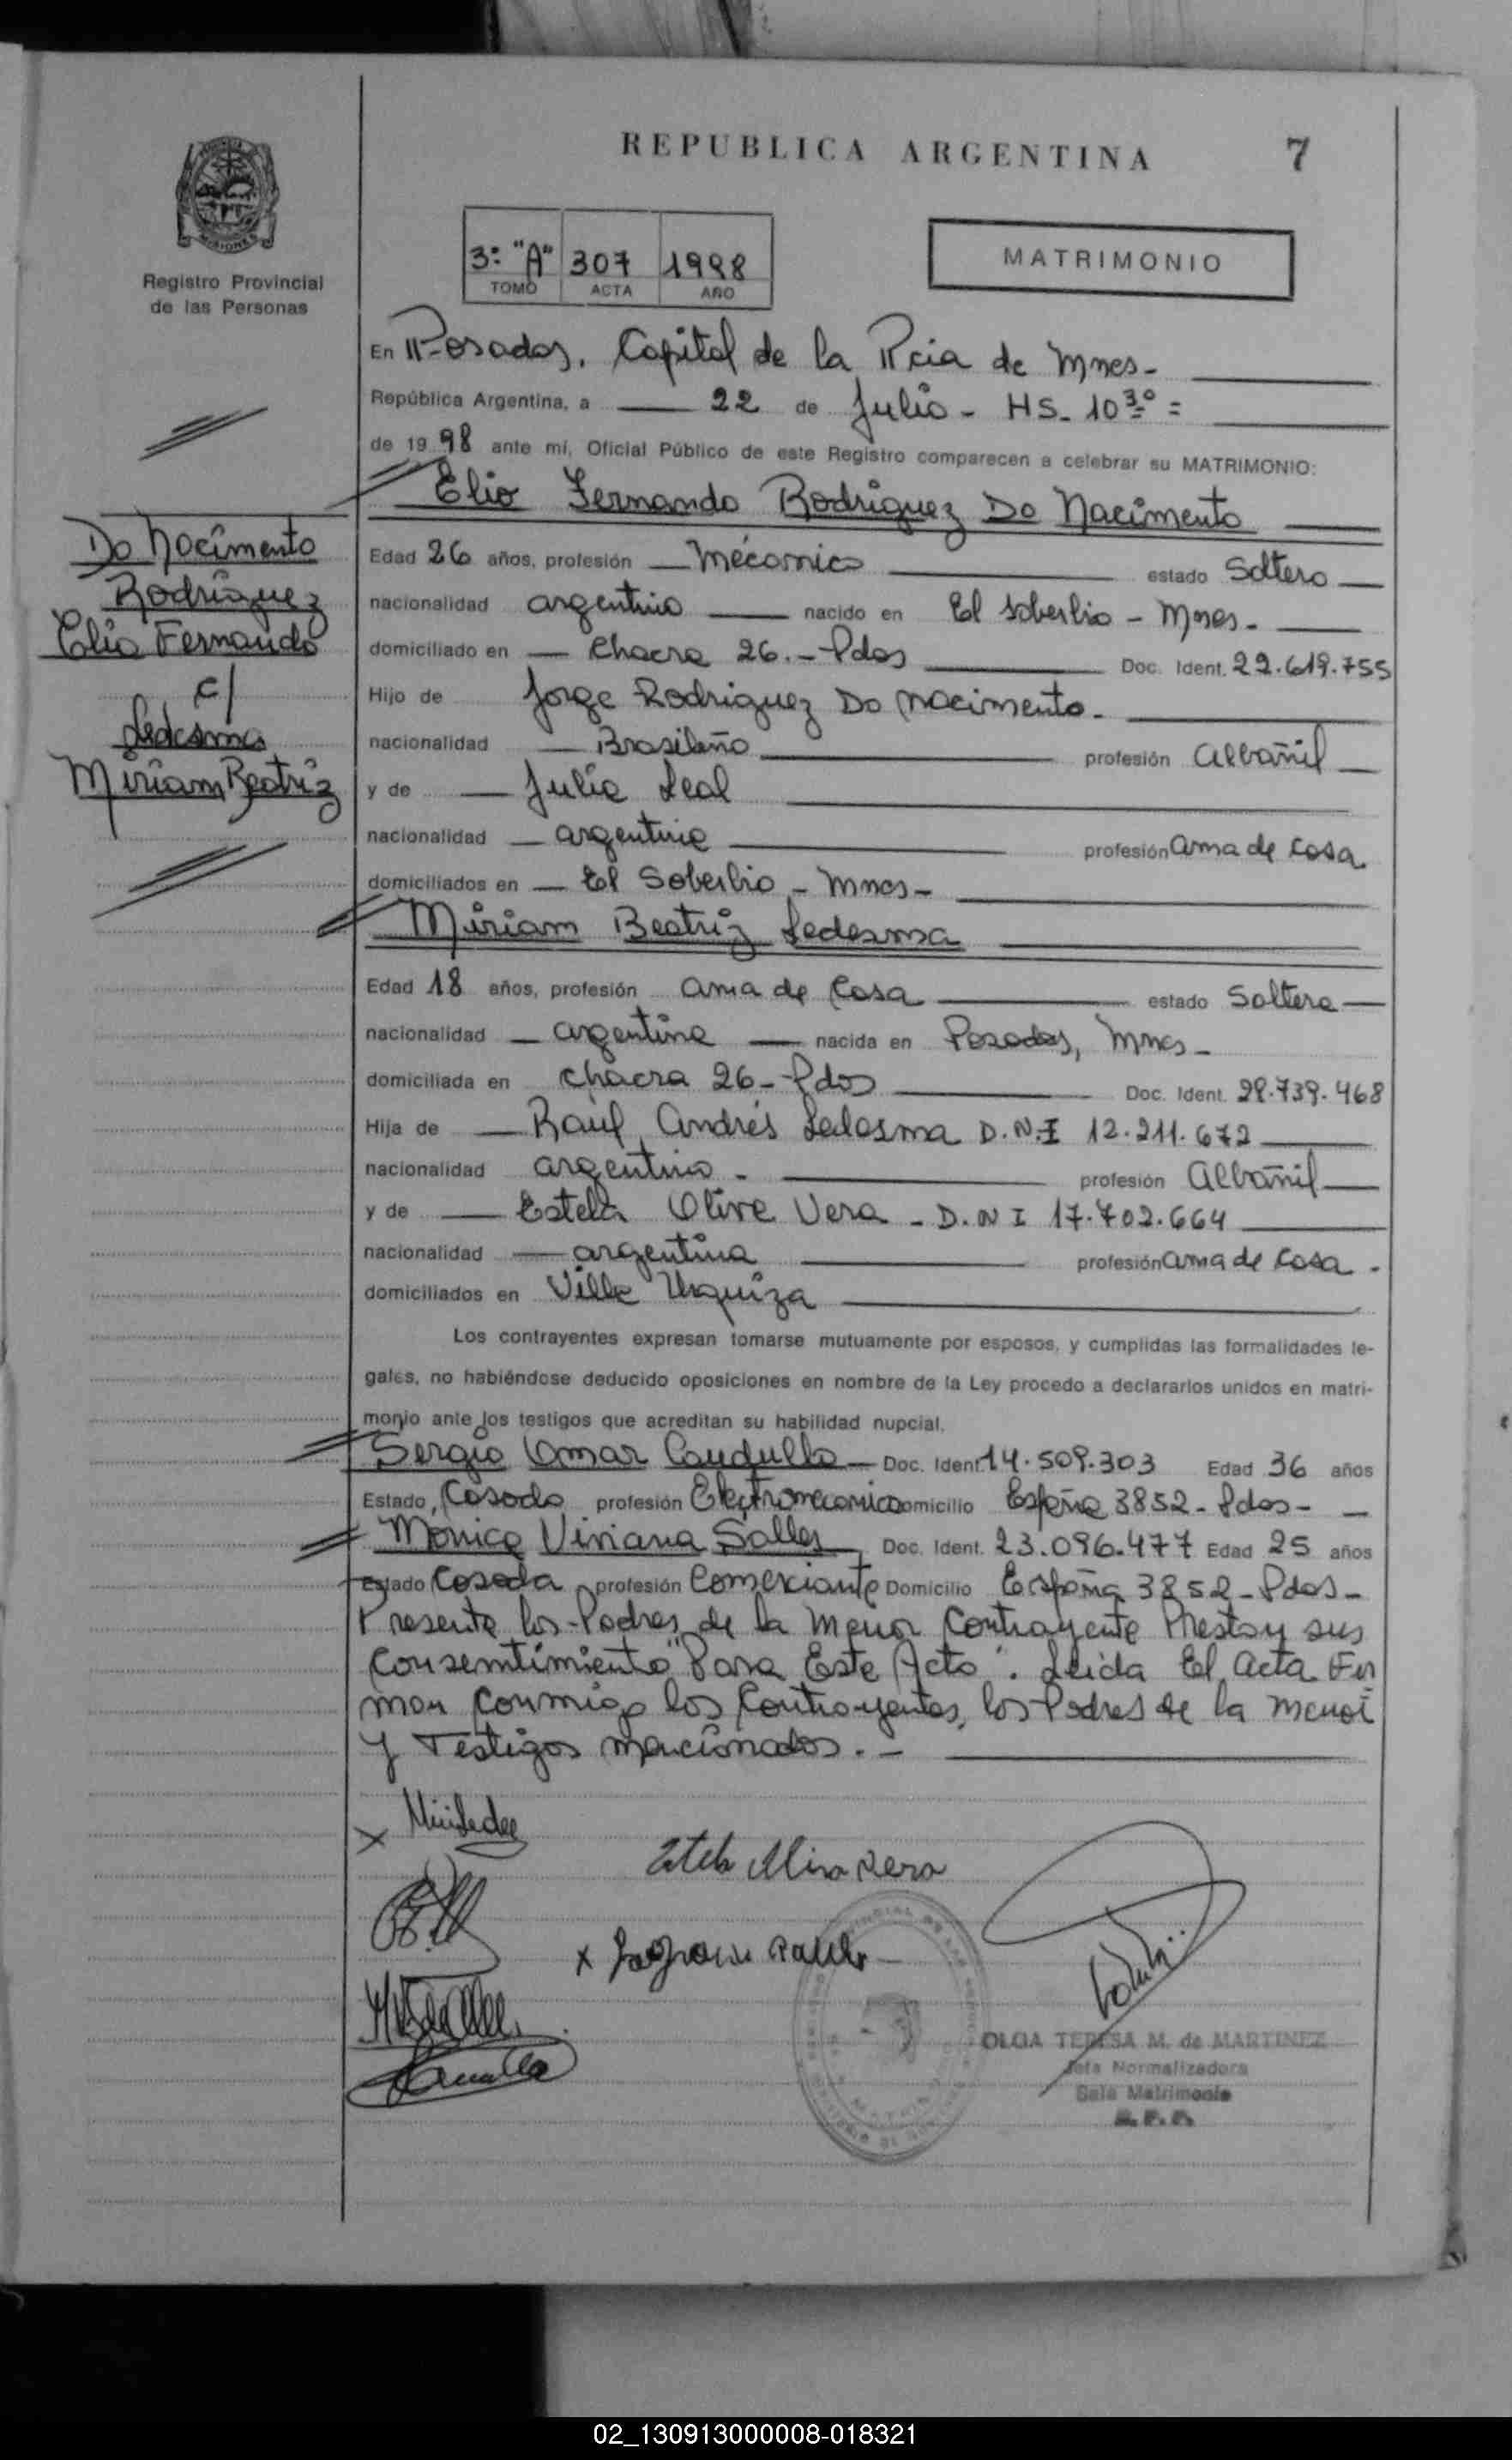 REPUBLICA ARGENTINA
7
MISIONES
Registro Provincial
de las Personas
3: "A" 307 1998
TOMO ACTA AÑO
MATRIMONIO
En Posadas, Capital de la Pcia de Mnes-
República Argentina, a 22 de Julio - HS. 10 30 =
de 19 98 ante mí, Oficial Público de este Registro comparecen a celebrar su MATRIMONIO:
Elio Fernando Rodriguez Do Nacimento
Do Nacimento
Rodriguez
Elio Fernando
c/
Ledesma
Miriam Beatriz
Edad 26 años, profesión Mecanico estado Soltero
nacionalidad argentino nacido en El Soberbio - Mnes-
domiciliado en Chacra 26.- Pdas Doc. Ident. 22.619.755
Hijo de Jorge Rodriguez Do Nacimento-
nacionalidad Brasileño profesión Albañil
y de Julia Leal
nacionalidad argentina profesión ama de casa
domiciliados en El Soberbio - Mnes-
Miriam Beatriz Ledesma
Edad 18 años, profesión ama de Casa estado Soltera
nacionalidad argentina nacida en Posadas, Mnes-
domiciliada en Chacra 26- Pdas Doc. Ident. 28.739.468
Hija de Raúl Andrés Ledesma D.N.I 12.211.672
nacionalidad argentino - profesión Albañil
y de Estela Oliva Vera - D.N I 17.702.664
nacionalidad argentina profesión ama de casa -
domiciliados en Villa Urquiza
Los contrayentes expresan tomarse mutuamente por esposos, y cumplidas las formalidades le-
gales, no habiéndose deducido oposiciones en nombre de la Ley procedo a declararlos unidos en matri-
monio ante los testigos que acreditan su habilidad nupcial.
Sergio Omar Caudullo Doc. Ident 14.509.303 Edad 36 años
Estado, Casado profesión Electromecanico Domicilio España 3852- Pdas-
Mónica Viviana Salles Doc. Ident. 23.096.477 Edad 25 años
Estado Casada profesión Comerciante Domicilio España 3852- Pdas-
Presente los Padres de la Menor Contrayente Prestan sus
Consentimiento "Para Este Acto". Leida El Acta Fir
man conmigo los Contrayentes, los Padres de la menor
y Testigos mencionados.-
x
Estela Oliva Vera
x
OLGA TERESA M. de MARTINEZ
Jefa Normalizadora
Sala Matrimonio
R.P.P.
02_130913000008-018321